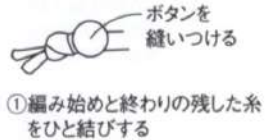 ボタンを
縫いつける
①編み始めと終わりの残した糸
をひと結びする